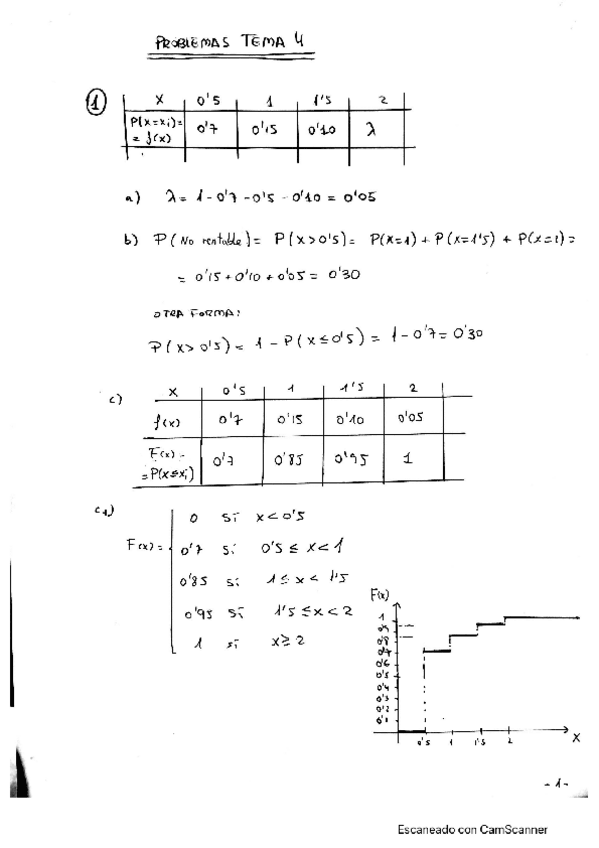 PROBLEMAS TEMA 4
1
X 0'5 1 1'5 2
P(X=xi)= 0'7 0'15 0'10 λ
= f(x)
a) λ = 1 - 0'7 - 0'5 - 0'10 = 0'05
b) P(No rentable) = P(X>0'5) = P(X=1) + P(X=1'5) + P(X=2) =
= 0'15 + 0'10 + 0'05 = 0'30
OTRA FORMA:
P(X>0'5) = 1 - P(X≤0'5) = 1 - 0'7 = 0'30
c)
X 0'5 1 1'5 2
f(x) 0'7 0'15 0'10 0'05
F(x) = 0'7 0'85 0'95 1
= P(X≤xi)
c1)
0 si x<0'5
F(x) = 0'7 si 0'5 ≤ x < 1
0'85 si 1 ≤ x < 1'5
0'95 si 1'5 ≤ x < 2
1 si x ≥ 2
F(x)
1
0'7
0'6
0'5
0'4
0'3
0'2
0'1
0'5 1 1'5 2 X
-1-
Escaneado con CamScanner